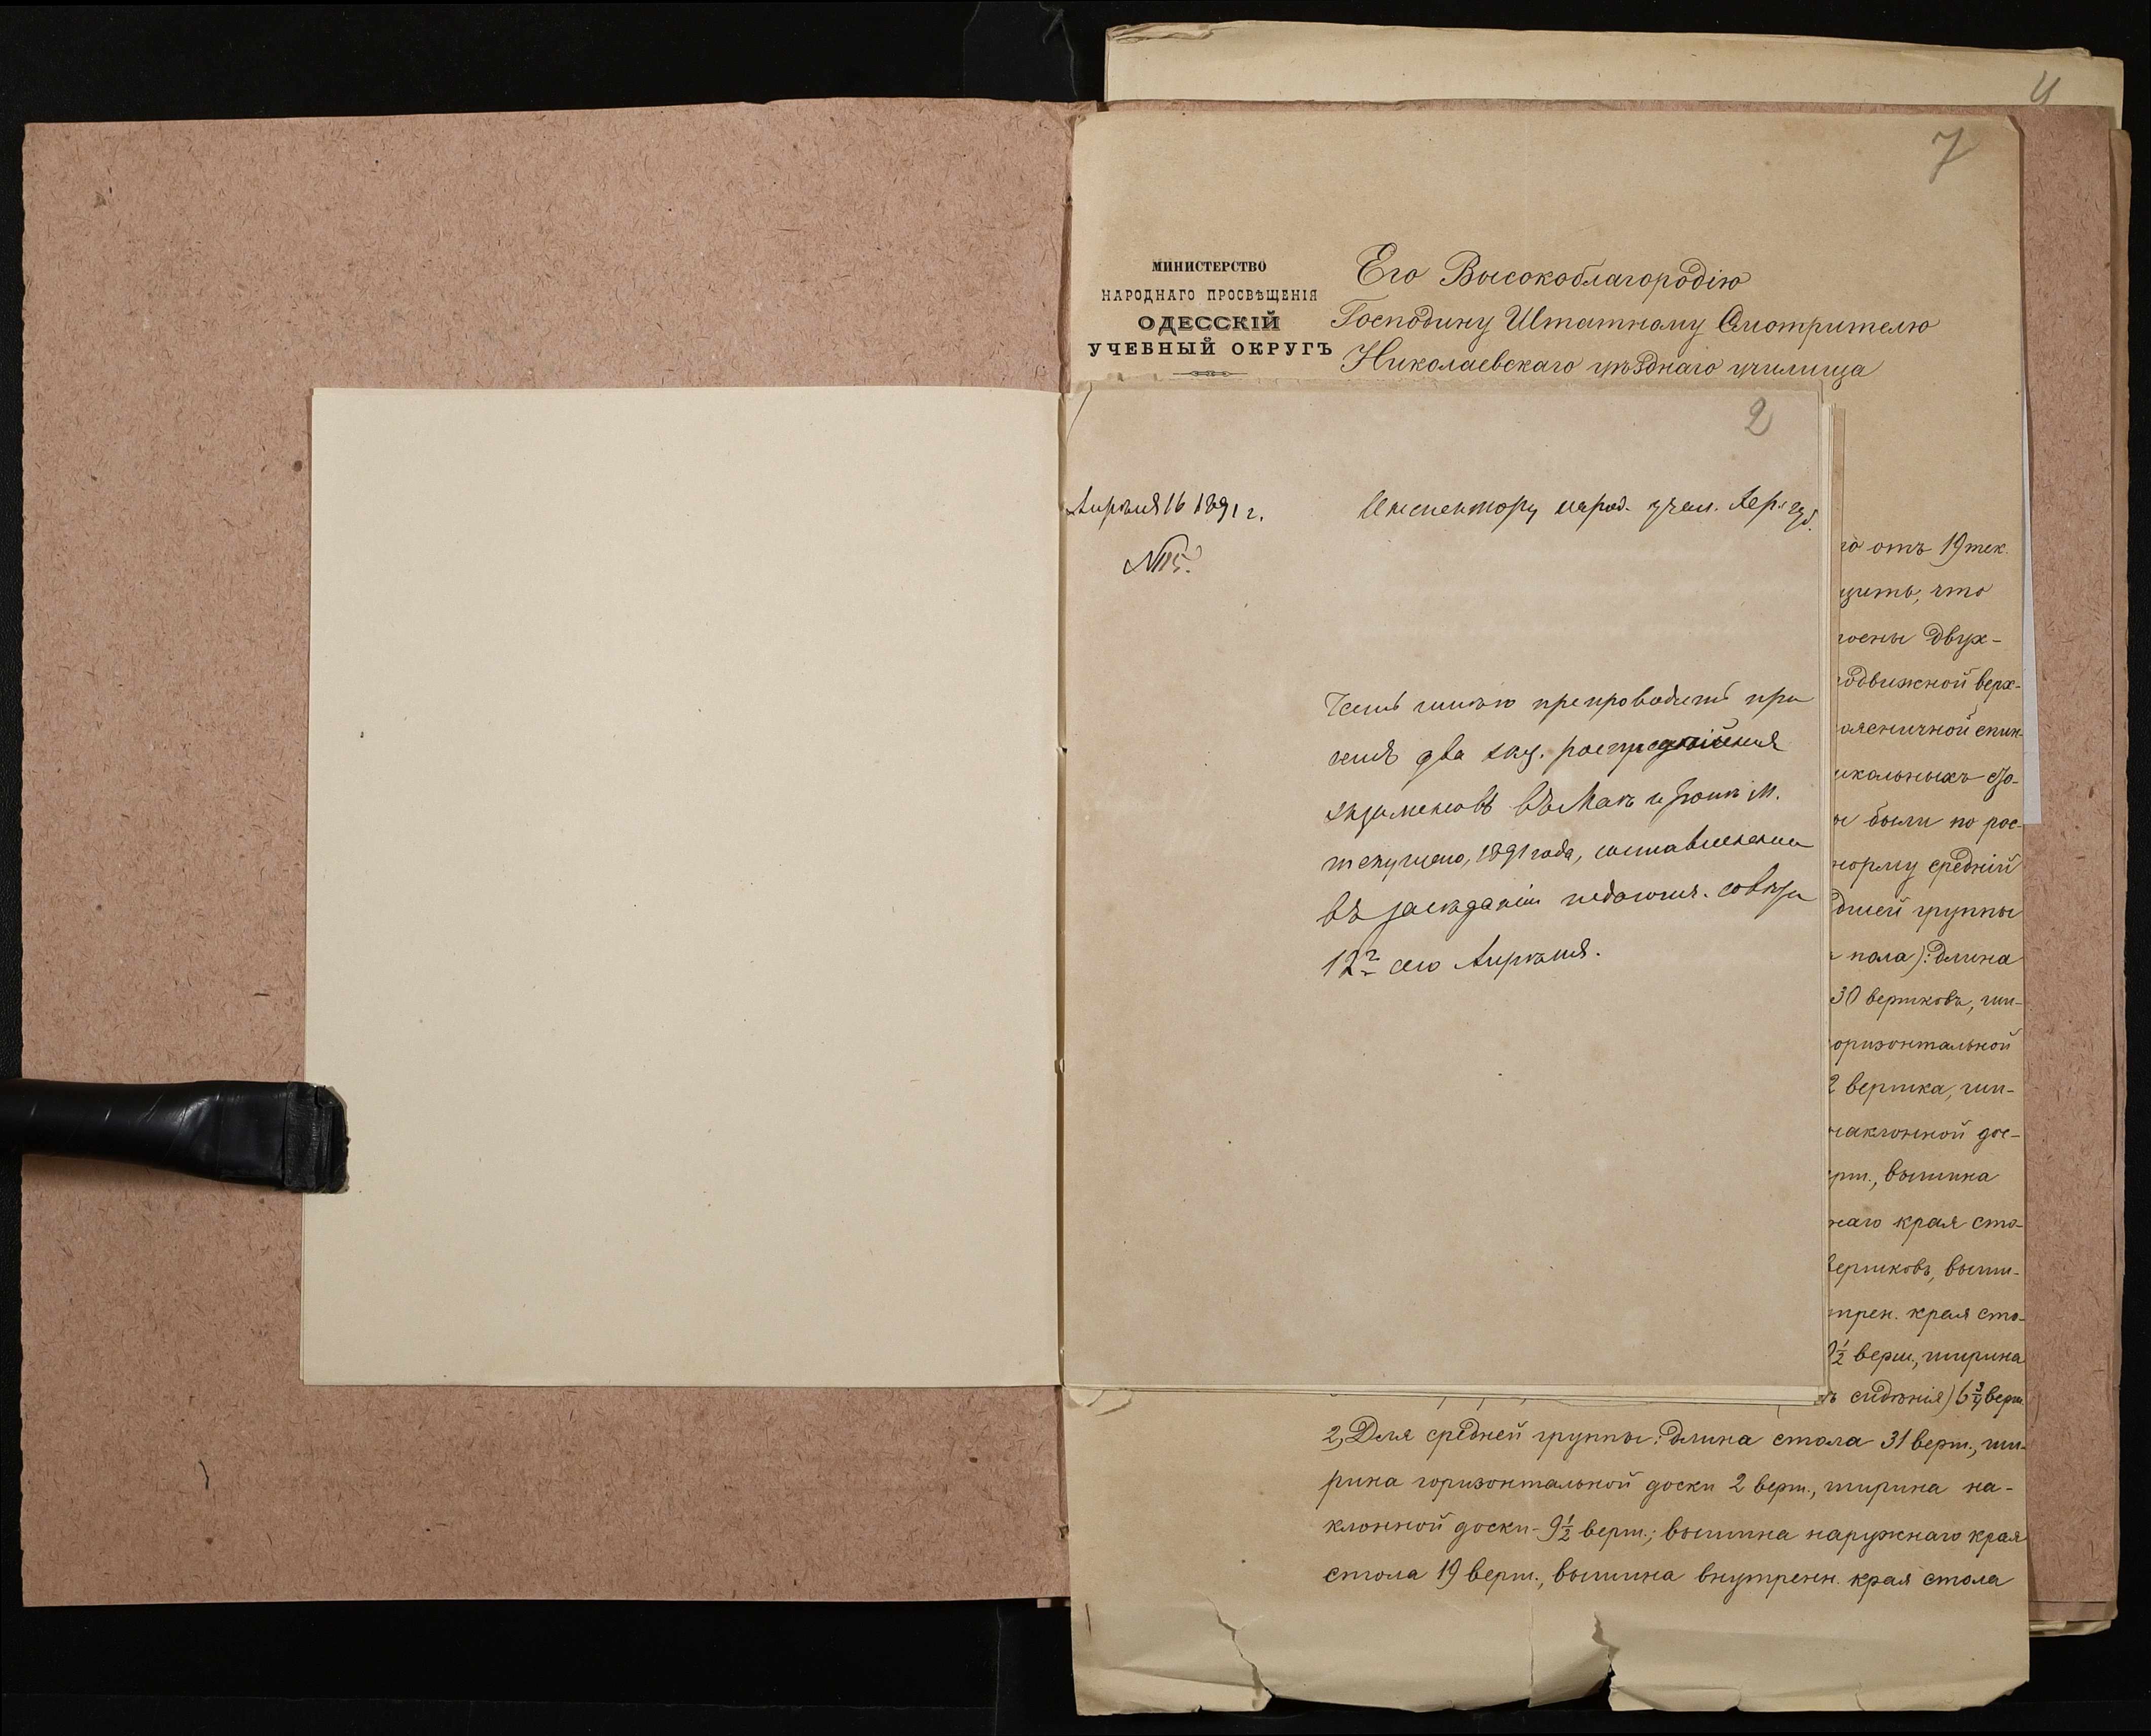 4
7
МИНИСТЕРСТВО
НАРОДНАГО ПРОСВѢЩЕНІЯ
ОДЕССКІЙ
УЧЕБНЫЙ ОКРУГЪ
Его Высокоблагородію
Господину Штатному Смотрителю
Николаевскаго уѣзднаго училища
2
Апрѣля 16 1891 г.
Инспектору народ. учил. Хер. губ.
№115.
Честь имѣю препроводить при
семъ два экз.
экзаменовъ въ Маѣ и Іюнѣ м.
текущаго, 1891 года, составленныя
въ засѣданіи педагогич. совѣта
12го сего Апрѣля.
го отъ 19 тек.
щить, что
роены двух-
подвижной верх-
поясничной спин-
икальныхъ
ые были по рос-
норму средній
дшей группы
пола): длина
30 вершковъ, ши-
горизонтальной
2 вершка, ши-
наклонной дос-
ерш., вышина
наго края сто-
вершковъ, выши-
утрен. края сто-
½ верш., ширина
ъ сидѣнія) 6¾ верш.
2, Для средней группы: длина стола 31 верш., ши-
рина горизонтальной доски 2 верш., ширина на-
клонной доски - 9½ верш.; вышина наружнаго края
стола 19 верш., вышина внутренн. края стола